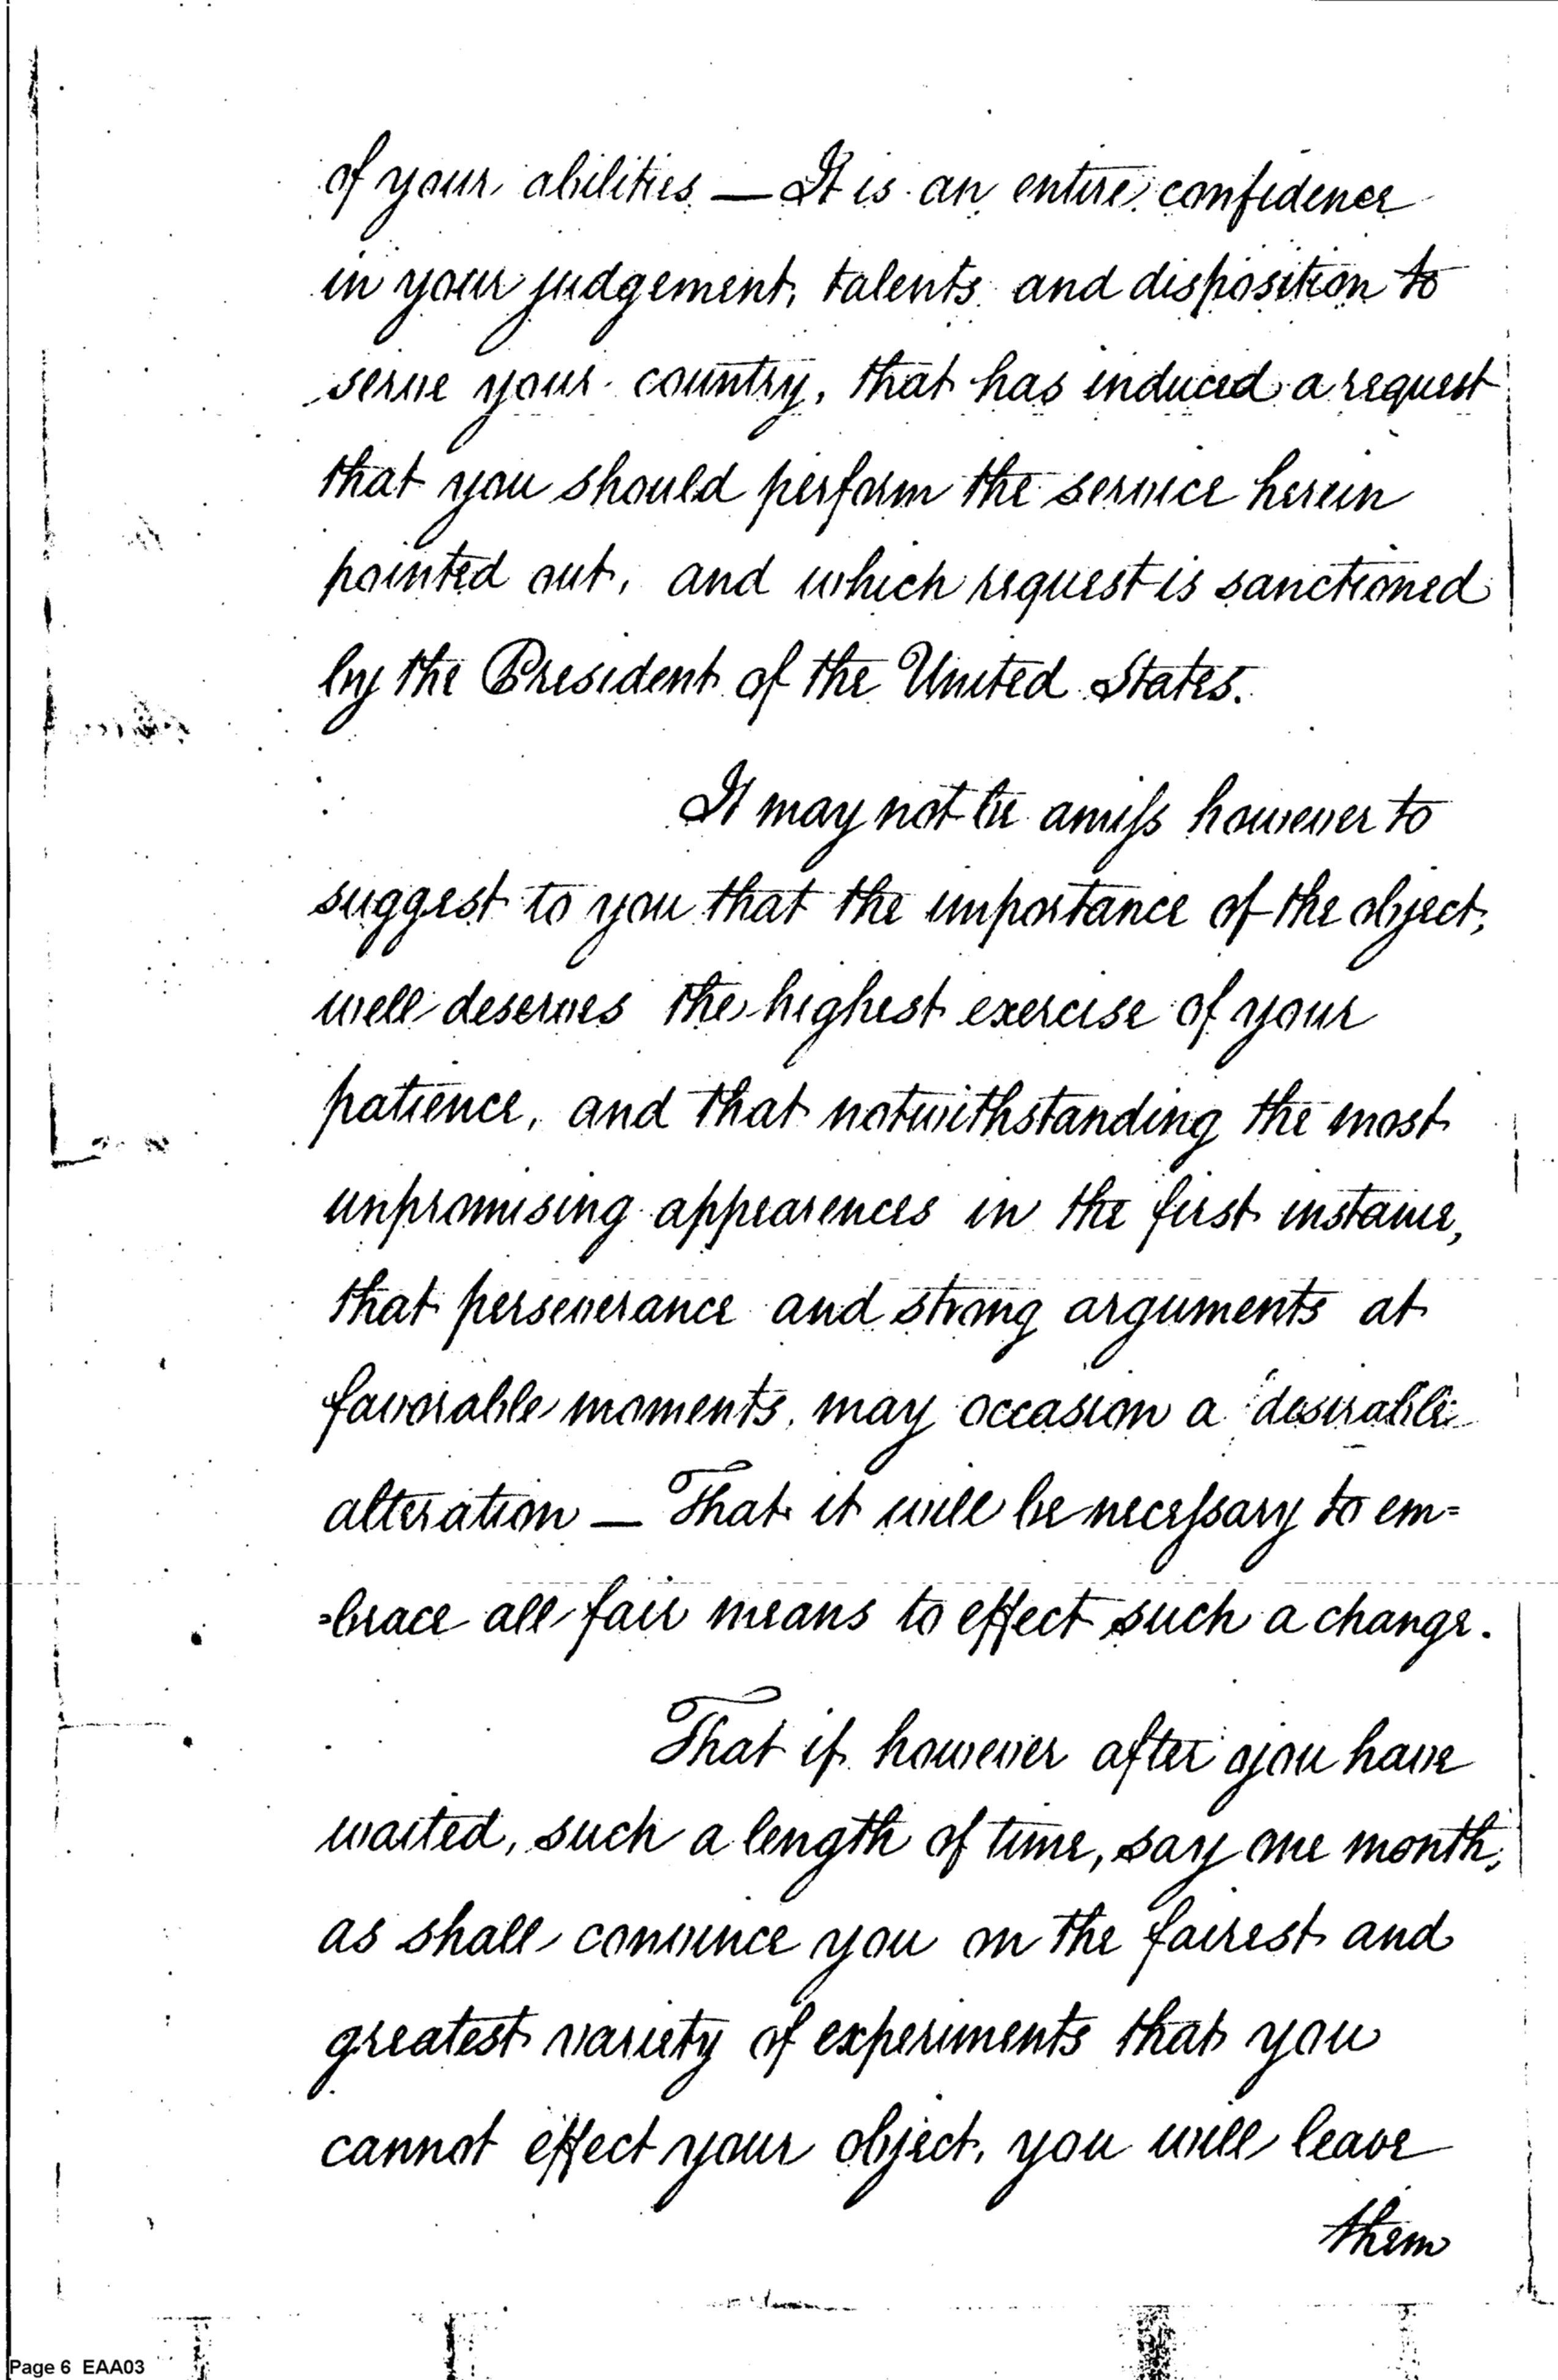 of your abilities — It is an entire confidence
in your judgement, talents and disposition to
serve your country, that has induced a request
that you should perform the service herein
pointed out, and which request is sanctioned
by the President of the United States.
It may not be amiss however to
suggest to you that the importance of the object,
well deserves the highest exercise of your
patience, and that notwithstanding the most
unpromising appearences in the first instance,
that perseverance and strong arguments at
favorable moments, may occasion a desirable
alteration — That it will be necessary to em=
=brace all fair means to effect such a change.
That if however after you have
waited, such a length of time, say one month,
as shall convince you on the fairest and
greatest variety of experiments that you
cannot effect your object, you will leave
them
Page 6 EAA03